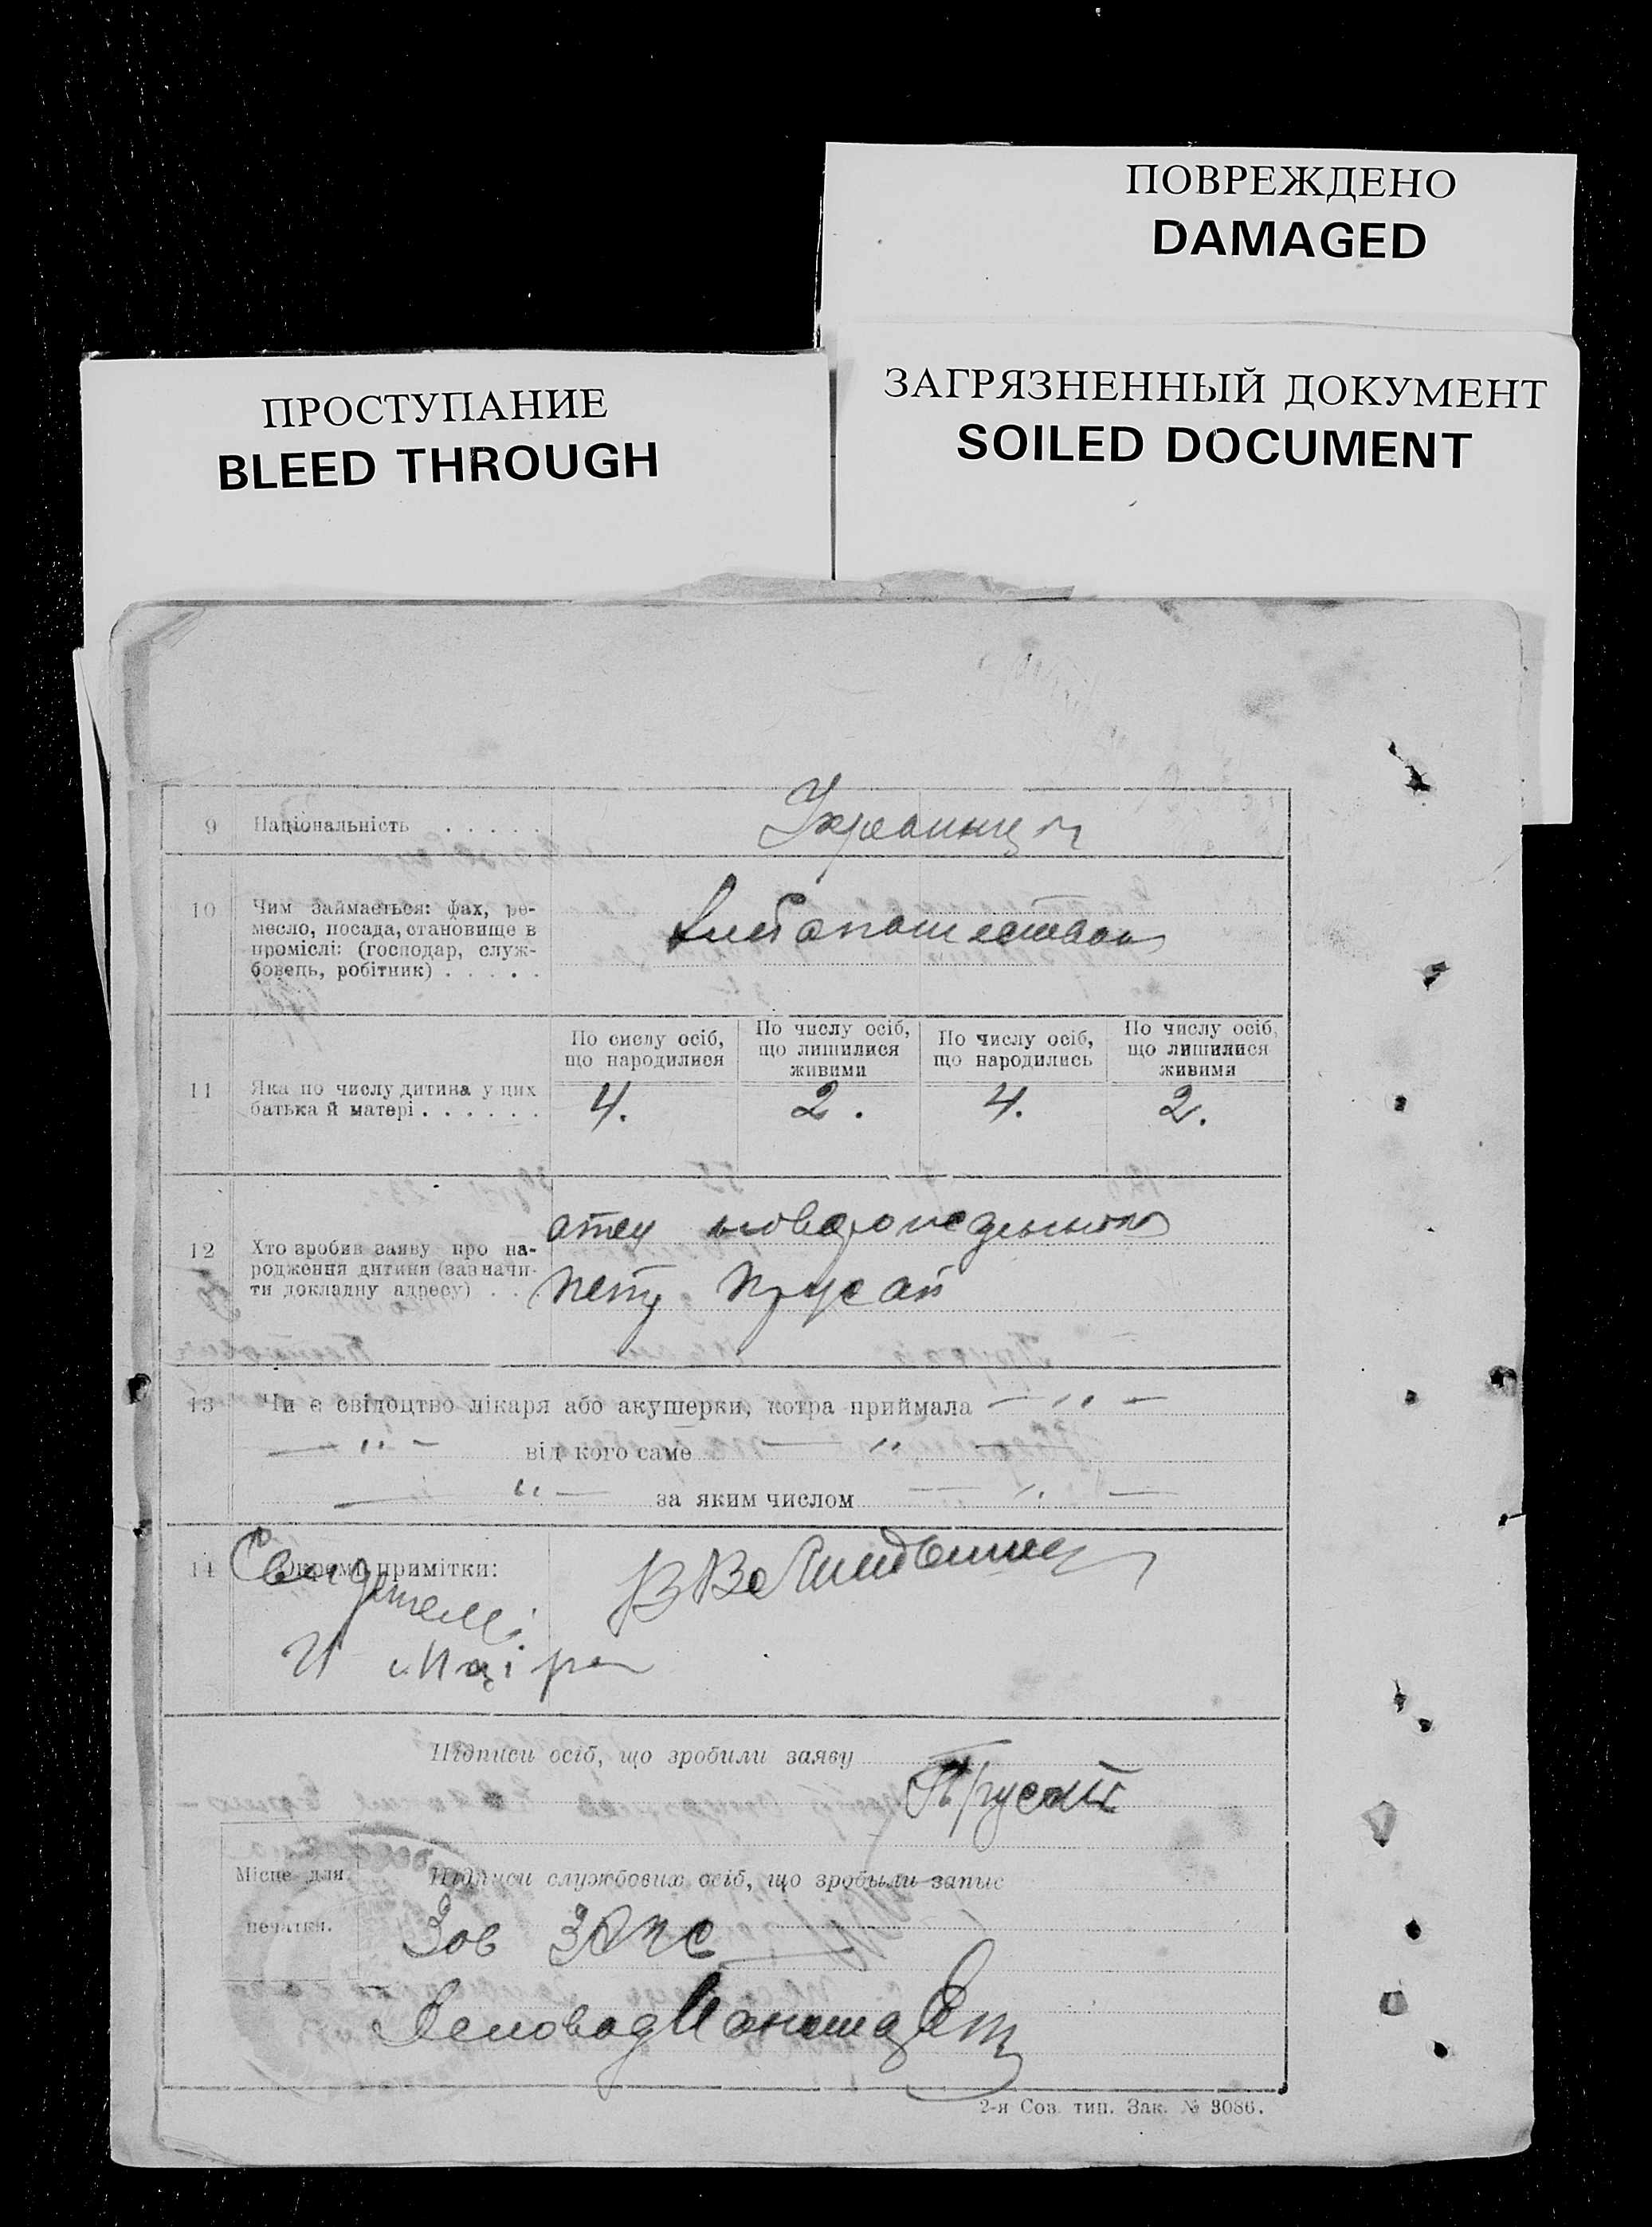 ПОВРЕЖДЕНО
DAMAGED
ПРОСТУПАНИЕ
BLEED THROUGH
ЗАГРЯЗНЕННЫЙ ДОКУМЕНТ
SOILED DOCUMENT
9 Національність
10 Чим займається: фах, ре-
месло, посада, становище в
проміслі: (господар, служ-
бовець, робітник)
хлебопашеством
По сислу осіб,
що народилися
По числу осіб,
що лишилися
живими
По числу осіб,
що народились
По числу осіб,
що лишилися
живими
11 Яка по числу дитина у цих
батька й матері
4. 2. 4. 2.
12 Хто зробив заяву про на-
родження дитини (зазначи-
ти докладну адресу)
отец
Петр Прусай
13 Чи є свідоцтво лікаря або акушерки, котра приймала — " —
— " — від кого саме — " —
— " — за яким числом — " —
14 Окремі примітки:
Свидетели:
Підписи осіб, що зробили заяву
Прусай
Місце для
печатки.
Підписи службових осіб, що зробыли запис
Зав ЗАГС
Деловод
2-я Сов. тип. Зак. № 3086.